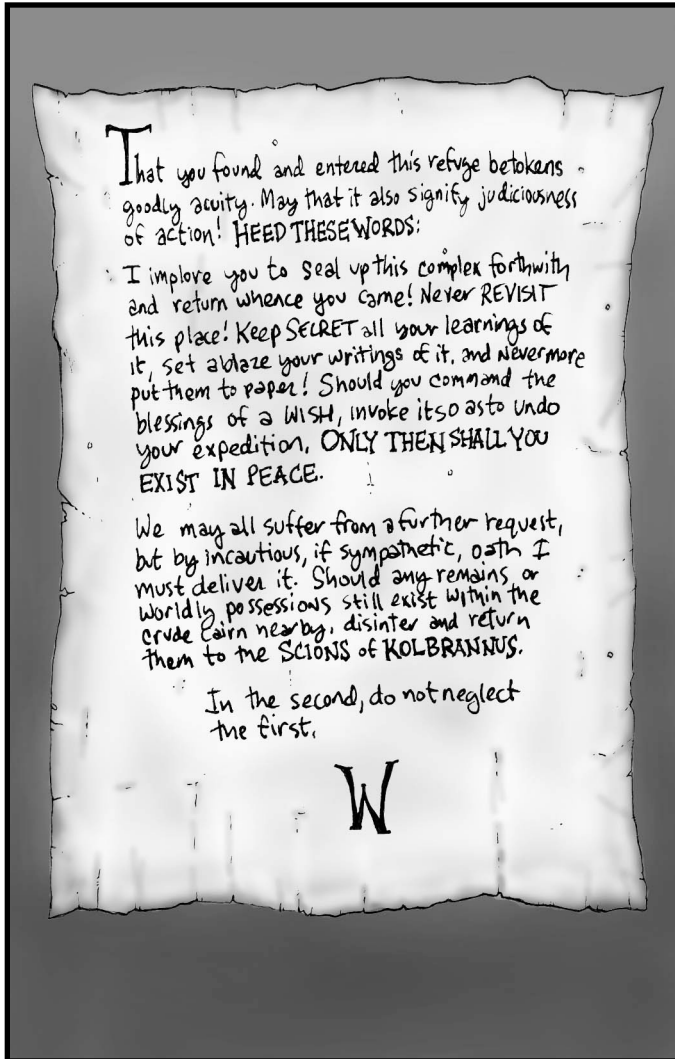 That you found and entered this refuge betokens
goodly acuity. May that it also signify judiciousness
of action! HEED THESE WORDS:
I implore you to seal up this complex forthwith
and return whence you came! Never REVISIT
this place! Keep SECRET all your learnings of
it, set ablaze your writings of it, and nevermore
put them to paper! Should you command the
blessings of a WISH, invoke it so as to undo
your expedition, ONLY THEN SHALL YOU
EXIST IN PEACE.
We may all suffer from a further request,
but by incautious, if sympathetic, oath I
must deliver it. Should any remains or
worldly possessions still exist within the
crude cairn nearby, disinter and return
them to the SCIONS of KOLBRANNUS.
In the second, do not neglect
the first.
W